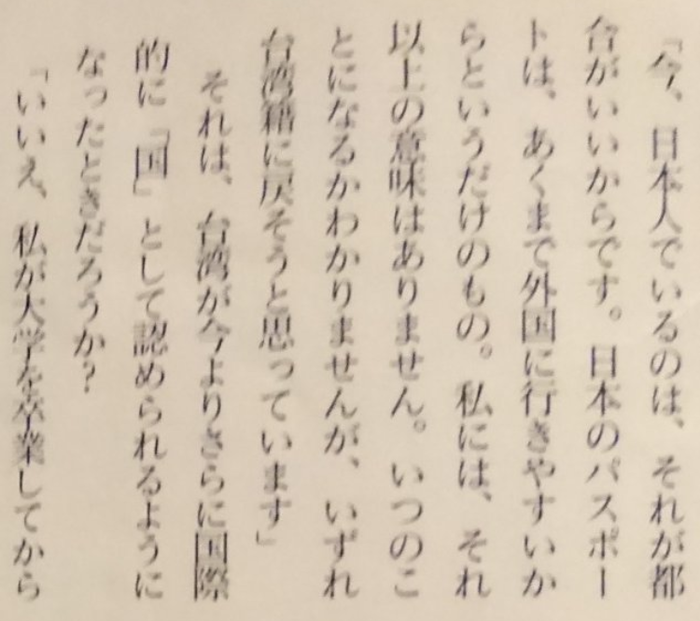 「今、日本人でいるのは、それが都
合がいいからです。日本のパスポー
トは、あくまで外国に行きやすいか
らというだけのもの。私には、それ
以上の意味はありません。いつのこ
とになるかわかりませんが、いずれ
台湾籍に戻そうと思っています」
それは、台湾が今よりさらに国際
的に「国」として認められるように
なったときだろうか?
「いいえ、私が大学を卒業してから